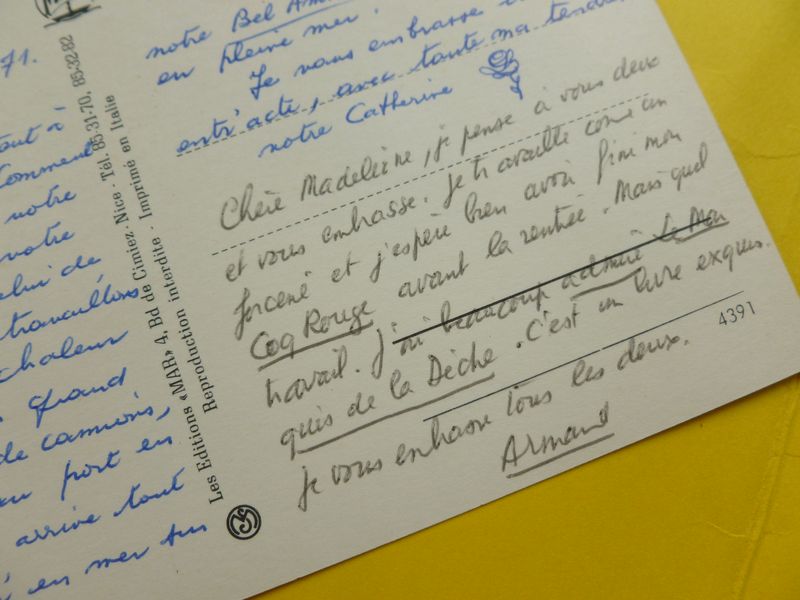 71.
out à
Comment
notre
votre
celui de
travaillons
chaleur
grand
de camions,
au port en
arrive tout
en mer sur
Les Editions «MAR» 4, Bd de Cimiez - Nice - Tél. 85-31-70, 85-32-82
Reproduction interdite - Imprimé en Italie
notre Bel Am
en pleine mer.
Je vous embrasse
entr'acte, avec toute ma tendre
notre Catherine
Chère Madeleine, je pense à vous deux
et vous embrasse. Je travaille comme un
forcené et j'espère bien avoir fini mon
Coq Rouge avant la rentrée. Mais quel
travail. J'ai beaucoup admiré Le Mar
quis de la Dèche. C'est un livre exquis.
Je vous embrasse tous les deux.
Armand
4391